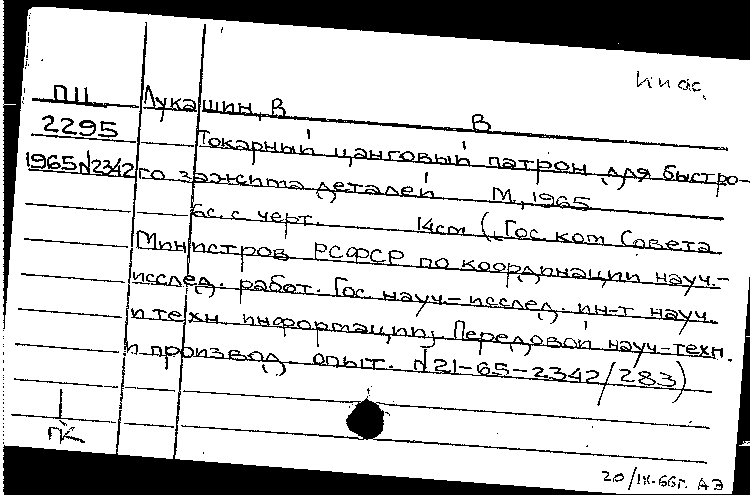 ПЦ Лукашин, В В
2295 Токарный цанговый патрон для быстро-
1965 N2342 го зажима деталей М, 1965
6с. с черт. 14см (Гос. ком Совета
Министров РСФСР по координации науч.-
исслед. работ. Гос. науч.-исслед. ин-т. науч.
и техн. информации, Передовой науч-техн.
и производ. опыт. N21-65-2342/283)
ПК
20/IX-66г. АЭ